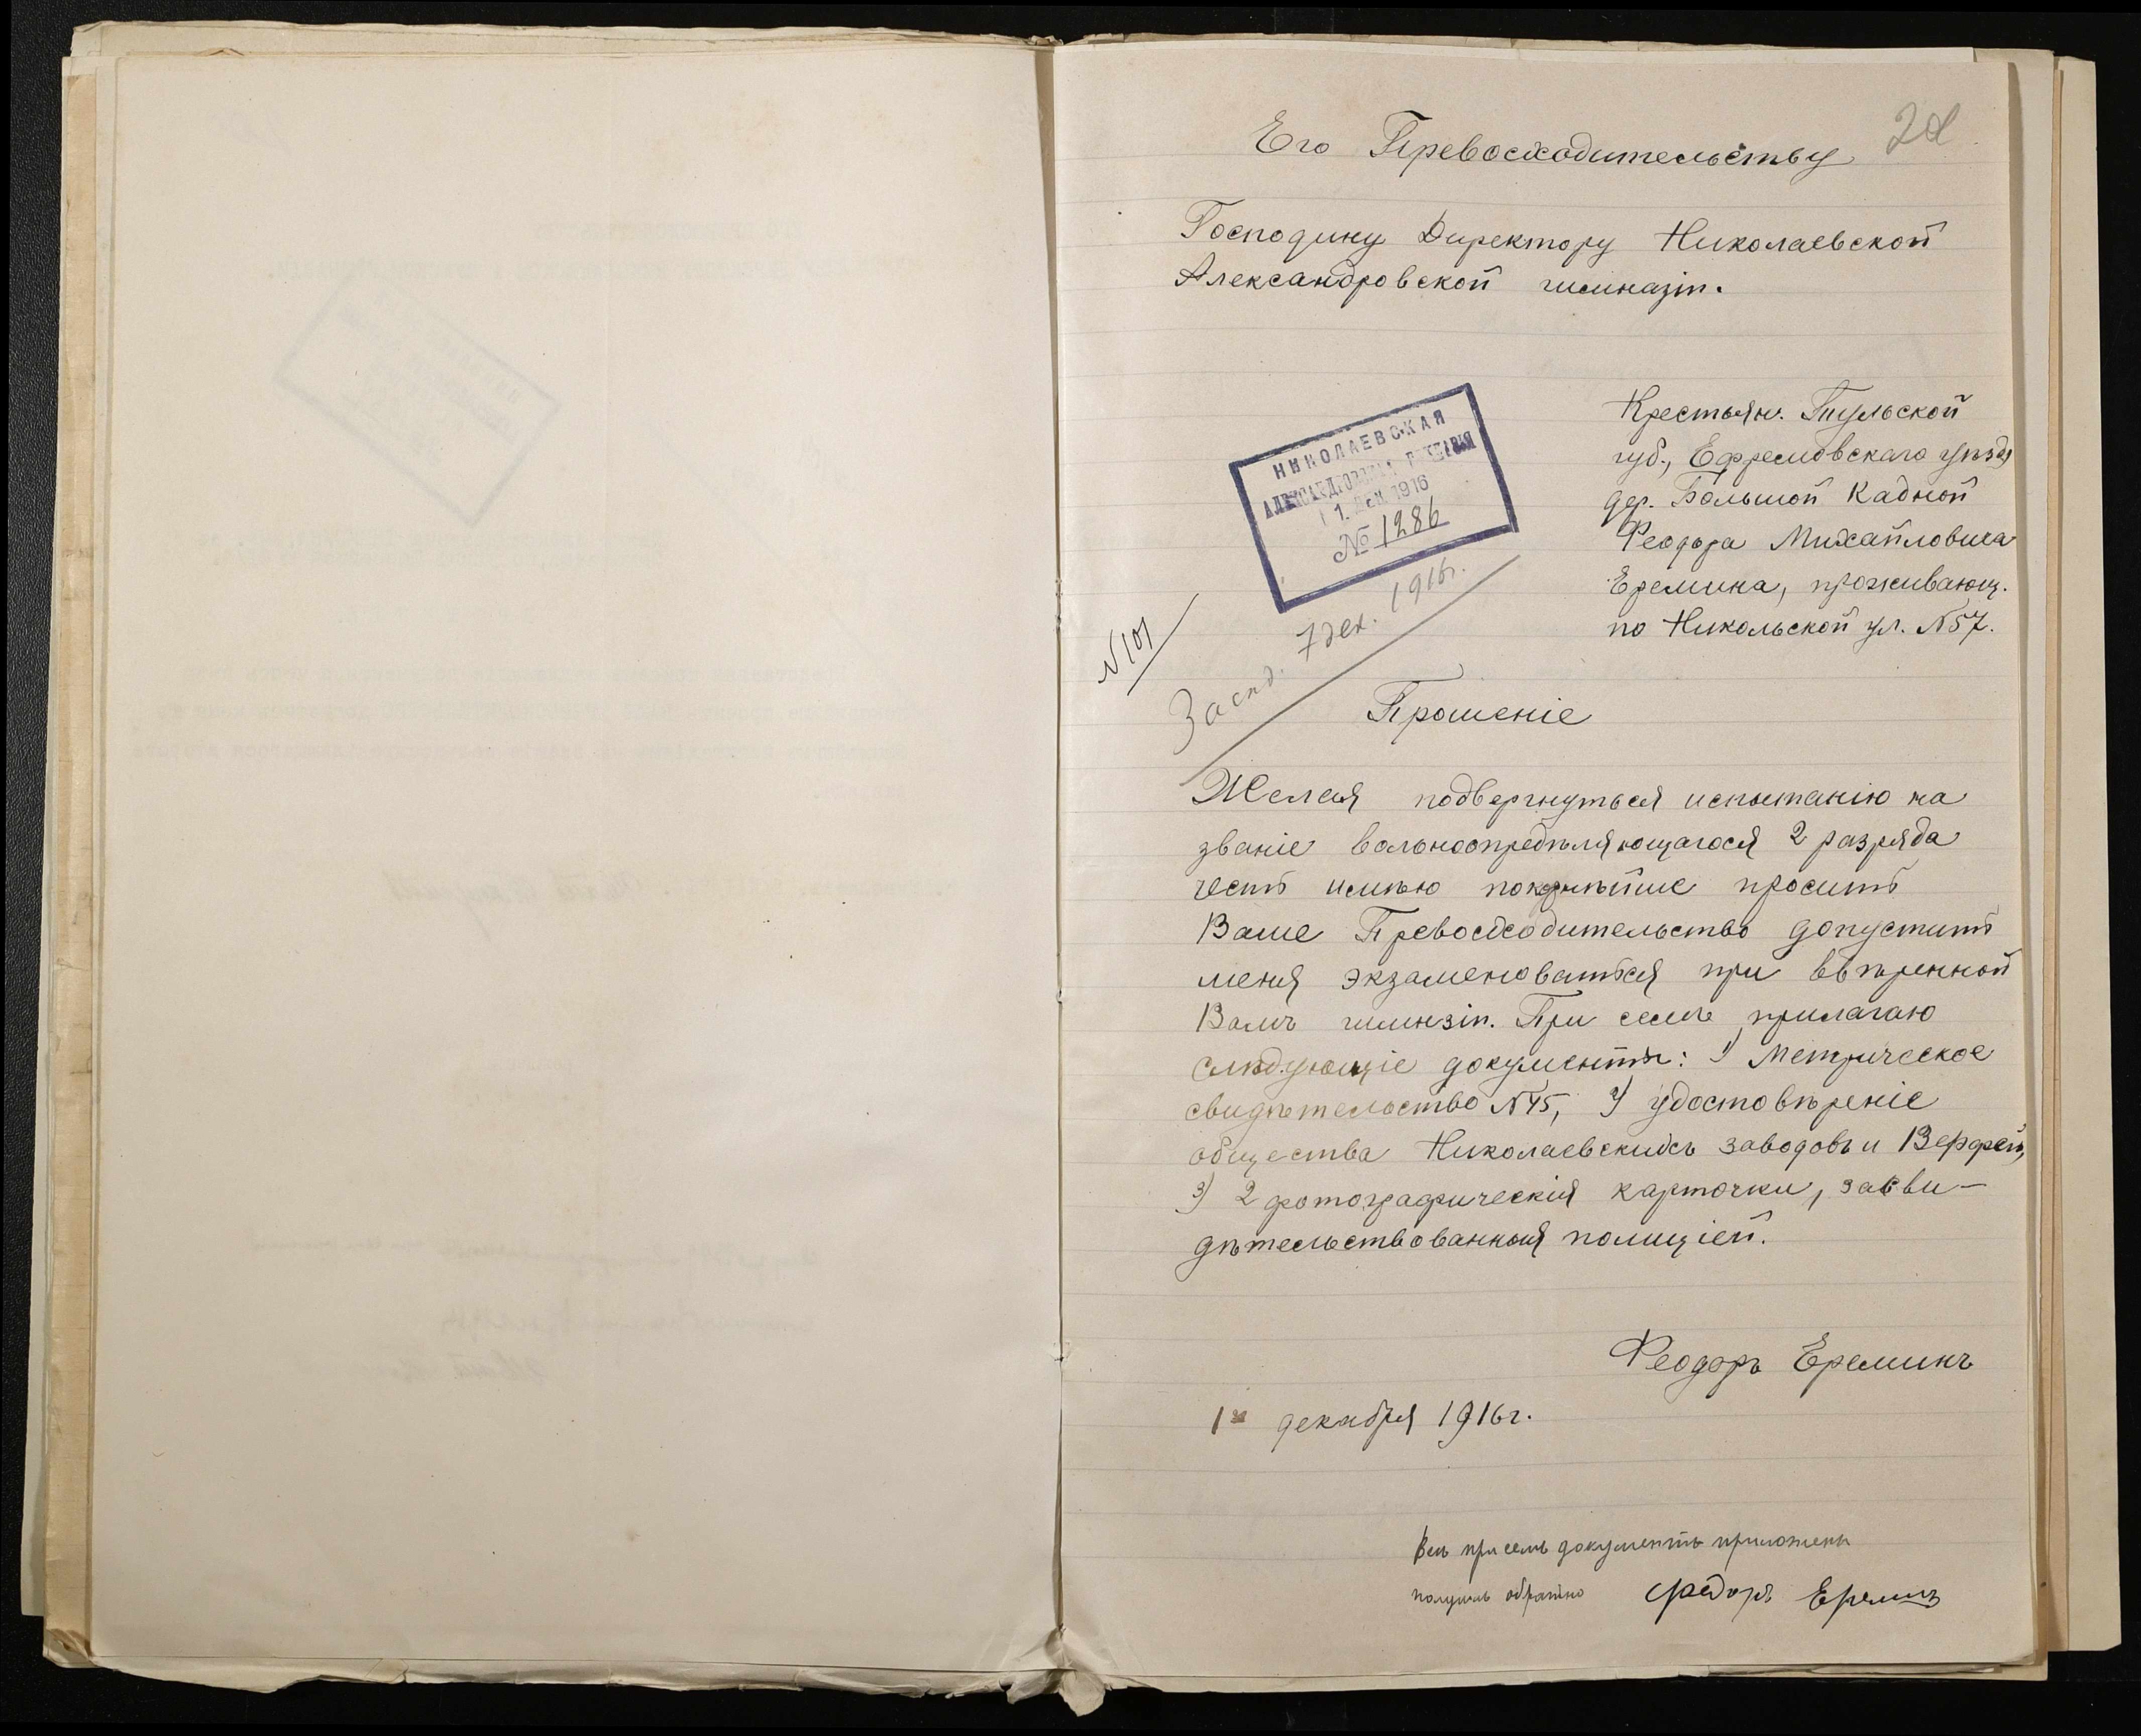 Его Превосходительству
Господину Директору Николаевской
Александровской гимназіи.
Крестьян. Тульской
губ., Ефремовскаго уѣзда
дер. Большой Кадной
Феодора Михайловича
Еремина, проживающ.
по Никольской ул. №57.
НИКОЛАЕВСКАЯ
АЛЕКСАНДРОВСКАЯ ГИМНАЗІЯ
1. Дек 1916
№ 1286
№101
7 дек. 1916г.
Прошеніе
Желая подвергнуться испытанію на
званіе вольноопредѣляющагося 2 разряда
честь имѣю покорнѣйше просить
Ваше Превосходительство допустить
меня экзаменоваться при ввѣренной
Вамъ гимнзіи. При семъ прилагаю
слѣдующіе документы: 1) Метрическое
свидѣтельство №45, 2) удостовѣреніе
общества Николаевскихъ заводовъ и Верфей,
3) 2 фотографическія карточки, засви-
дѣтельствованныя полиціей.
Феодоръ Ереминъ
1го декабря 1916г.
Всѣ при семъ документы приложены
получилъ обратно Федоръ Ереминъ